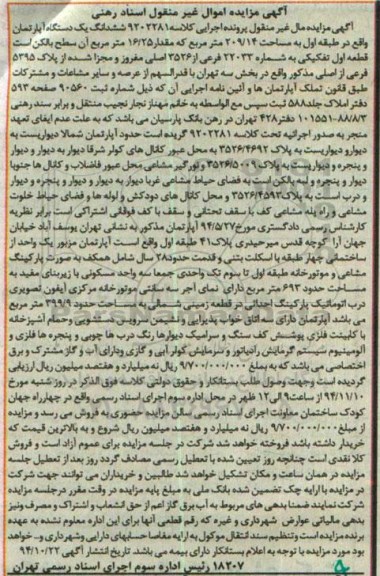 آگهی مزایده اموال غیر منقول اسناد رهنی
آگهی مزایده مال غیر منقول پرونده اجرایی کلاسه ۹۲۰۲۲۸۱ ششدانگ یک دستگاه آپارتمان
واقع در طبقه اول به مساحت ۲۰۹/۱۴ متر مربع که مقدار ۱۶/۲۵ متر مربع آن سطح بالکن است
قطعه اول تفکیکی به شماره ۲۲۰۳۳ فرعی از ۳۵۲۶ اصلی مفروز و مجزا شده از پلاک ۵۳۹۵
فرعی از اصلی مذکور واقع در بخش سه تهران با قدرالسهم از عرصه و سایر مشاعات و مشترکات
طبق قانون تملک آپارتمان ها و آئین نامه اجرایی آن که ذیل شماره ثبت ۹۰۵۶۰ صفحه ۵۹۳
دفتر املاک جلد ۵۸۸ ثبت سپس مع الواسطه به خانم مهناز نجار نجیب منتقل و برابر سند رهنی
۱۰۱۵۵۱-۸۸/۸/۳ دفتر ۴۲۸ تهران در رهن بانک پارسیان می باشد که به علت عدم ایفای تعهد
منجر به صدور اجرائیه تحت کلاسه ۹۲۰۲۲۸۱ گریده است حدود آپارتمان شمالا دیواریست به
دیوار و دیواریست به پلاک ۳۵۲۶/۴۶۹۲ به محل عبور کانال های کولر شرقا دیوار به دیوار و دیوار
و پنجره و دیواریست به پلاک ۳۵۲۶/۵۰۰۹ و نورگیر مشاعی محل عبور فاضلاب و کانال ها جنوبا
دیوار و پنجره و لبه بالکن است به فضای حیاط مشاعی غربا دیوار به دیوار و دیوار و پنجره و دیوار
و درب است به پلاک ۳۵۲۶/۴۵۹۳ و محل کانال های دودکش و لوله ها و فضای حیاط خلوت
مشاعی و راه پله مشاعی کف با سقف تحتانی و سقف با کف فوقانی اشتراکی است برابر نظریه
کارشناس رسمی دادگستری مورخ ۹۴/۵/۲۷ آپارتمان مذکور به نشانی تهران یوسف آباد خیابان
جهان آرا کوچه قدس میرحیدری پلاک ۴۱ طبقه اول واقع است آپارتمان مزبور یک واحد از
ساختمانی چهار طبقه با اسکلت بتنی و قدمت حدود ۲۸ سال شامل همکف به صورت پارکینگ
مشاعی و موتورخانه طبقه اول تا سوم تک واحدی جمعا سه واحد مسکونی با زیربنای مفید به
مساحت حدود ۶۹۳ متر مربع دارای نمای آجر سه سانتی موتورخانه مرکزی آیفون تصویری
درب اتوماتیک پارکینگ احداثی در قطعه زمین شمالی به مساحت حدود ۳۹۹/۹ متر مربع
می باشد آپارتمان دارای سه اتاق خواب پذیرایی و نشیمن سرویس دستشویی و حمام آشپزخانه
با کابینت فلزی پوشش کف سنگ و سرامیک دیوارها رنگ درب ها چوبی و پنجره ها فلزی و
آلومینیوم سیستم گرمایش رادیاتور و سرمایش کولر آبی و گازی ودارای آب و گاز مشترک و برق
اختصاصی می باشد که به مبلغ ۹/۷۰۰/۰۰۰/۰۰۰ ریال نه میلیارد و هفتصد میلیون ریال ارزیابی
گردیده است وجهت وصول طلب بستانکار و حقوق دولتی کلاسه فوق الذکر در روز شنبه مورخ
۹۴/۱۱/۱۰ از ساعت ۹ الی ۱۲ ظهر در محل اداره سوم اجرای اسناد رسمی واقع در چهارراه جهان
کودک ساختمان معاونت اجرای اسناد رسمی سالن مزایده حضوری به فروش می رسد و مزایده
از مبلغ ۹/۷۰۰/۰۰۰/۰۰۰ ریال نه میلیارد و هفتصد میلیون ریال شروع و به بالاترین قیمت که
خریدار داشته باشد فروخته خواهد شد شرکت در جلسه مزایده برای عموم آزاد است و فروش
کلا نقدی است چنانچه روز تعیین شده با تعطیل رسمی مصادف گردد روز بعد از تعطیل جلسه
مزایده در همان ساعت و مکان تشکیل خواهد شد طالبین و خریداران می توانند جهت شرکت
در مزایده با ارایه چک تضمین شده بانک ملی به مبلغ پایه مزایده در وقت مقرر درجلسه مزایده
شرکت نمایند ضمنا بدهی های مربوط به آب برق گاز اعم از حق انشعاب و اشتراک و مصرف ونیز
بدهی مالیاتی عوارض شهرداری و غیره که رقم قطعی آنها برای این اداره معلوم نشده به عهده
برنده مزایده است و تنظیم سند انتقال موکول به ارایه مفاصا حسابهای دارایی وشهرداری و... خواهد
بود مورد مزایده با توجه به اعلام بستانکار دارای بیمه می باشد. تاریخ انتشار آگهی ۹۴/۱۰/۲۲
۱۸۲۰۷ رئیس اداره سوم اجرای اسناد رسمی تهران